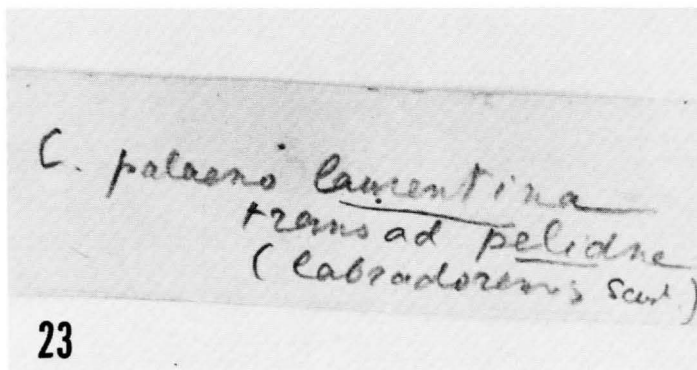 C. palaeno laurentina
trans ad pelidne
(labradorensis Scud.)
23